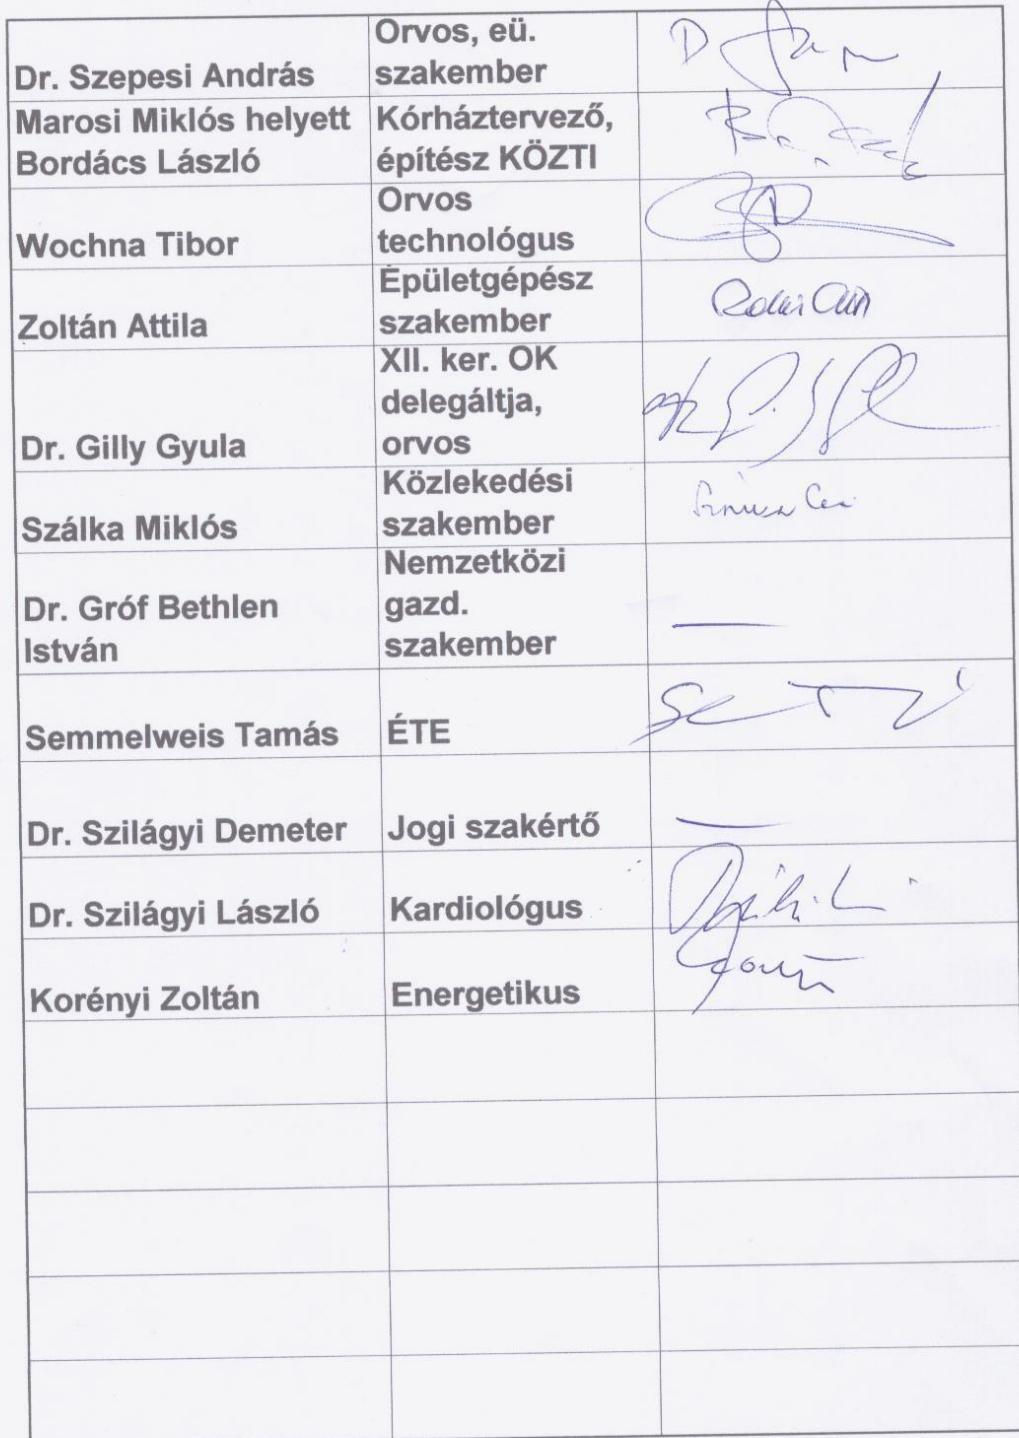 Dr. Szepesi András
Orvos, eü.
szakember
Marosi Miklós helyett
Bordács László
Kórháztervező,
építész KÖZTI
Wochna Tibor
Orvos
technológus
Zoltán Attila
Épületgépész
szakember
Dr. Gilly Gyula
XII. ker. OK
delegáltja,
orvos
Szálka Miklós
Közlekedési
szakember
Dr. Gróf Bethlen
István
Nemzetközi
gazd.
szakember
Semmelweis Tamás
ÉTE
Dr. Szilágyi Demeter
Jogi szakértő
Dr. Szilágyi László
Kardiológus
Korényi Zoltán
Energetikus